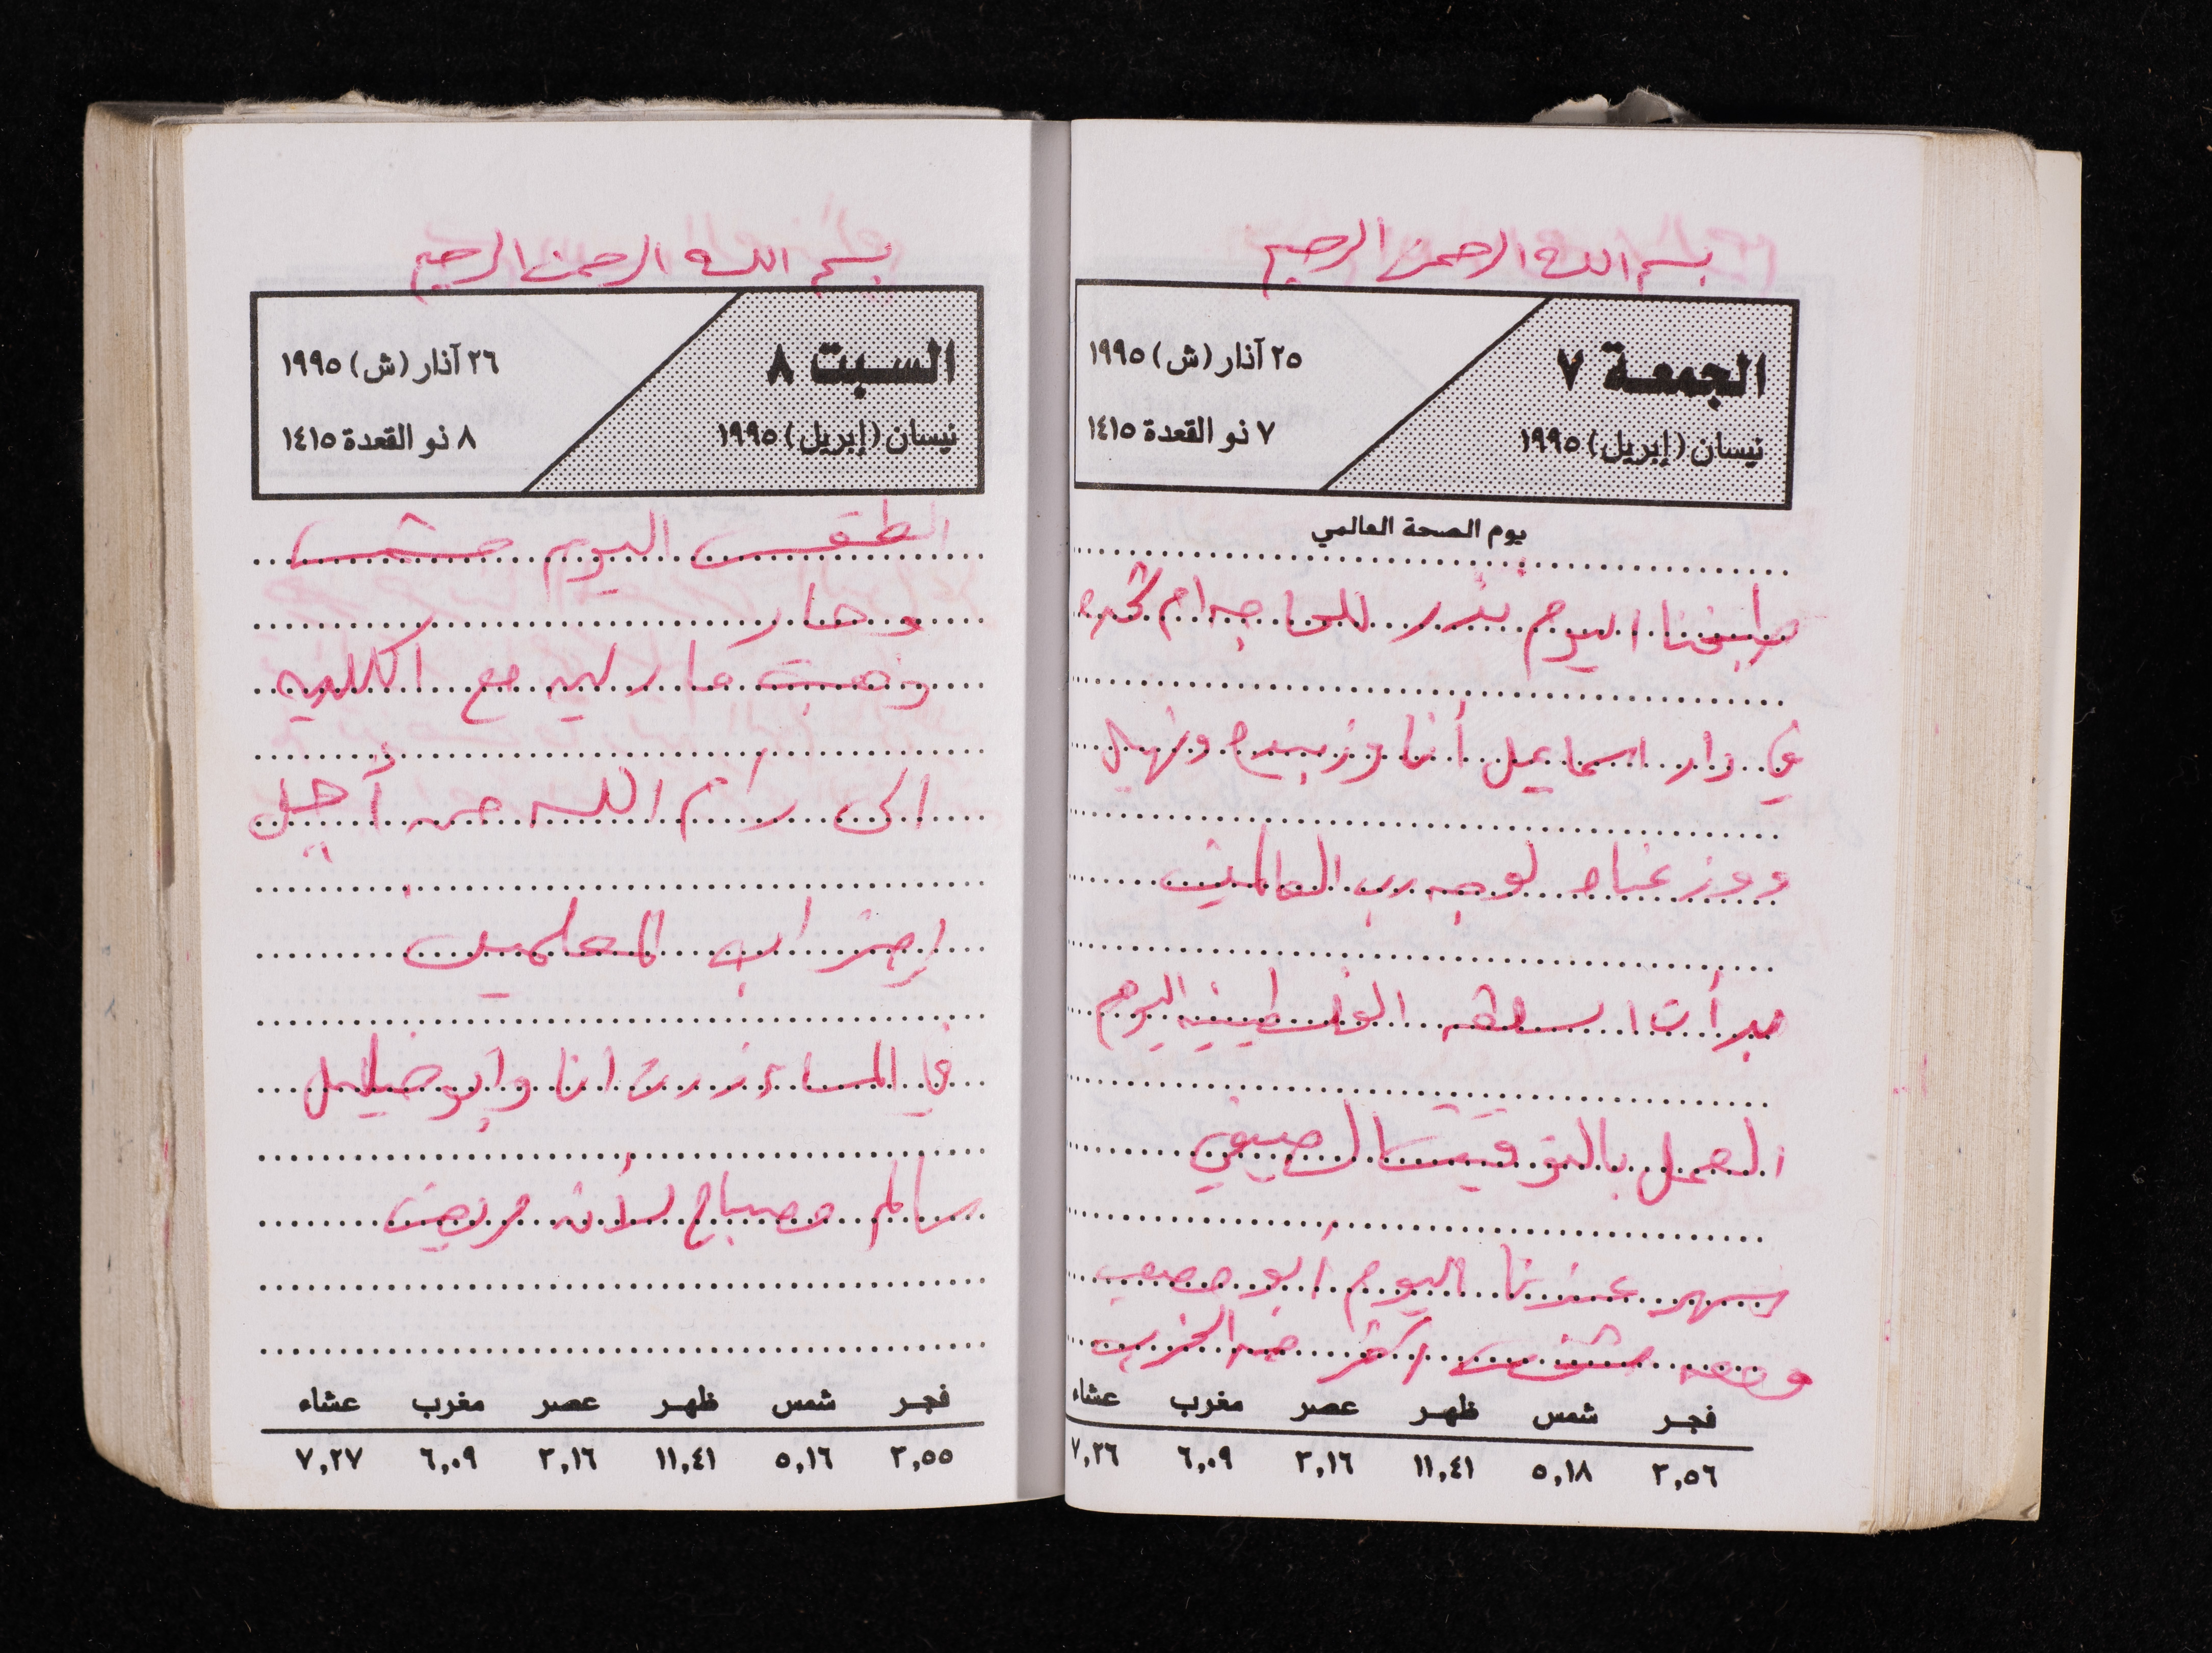 بسم الله الرحمن الرحيم
الجمعة ٧
٢٥ آذار (ش) ١٩٩٥
نيسان (إبريل) ١٩٩٥
٧ ذو القعدة ١٤١٥
يوم الصحة العالمي
اليوم نذر للحاجه ام
في دار اسماعيل أنا وزبيده ونهيل
ووزعناه لوجه رب العالمين
بدأت السلطه الفلسطينيه اليوم
العمل بالتوقيت الصيفي
سهر عندنا اليوم أبو مصعب
ومعه شخص اكثر من الحزب
فجر شمس ظهر عصر مغرب عشاء
٣,٥٦ ٥,١٨ ١١,٤١ ٣,١٦ ٦,٠٩ ٧,٢٦
بسم الله الرحمن الرحيم
السبت ٨
٢٦ آذار (ش) ١٩٩٥
نيسان (إبريل) ١٩٩٥
٨ ذو القعدة ١٤١٥
الطقس اليوم مشمس
وحار
ذهبت ماركيه مع الكليه
الى رام الله من أجل
إضراب المعلمين
في المساء زرت انا وابو خليل
سالم مصباح لأنه مريض
فجر شمس ظهر عصر مغرب عشاء
٣,٥٥ ٥,١٦ ١١,٤١ ٣,١٦ ٦,٠٩ ٧,٢٧